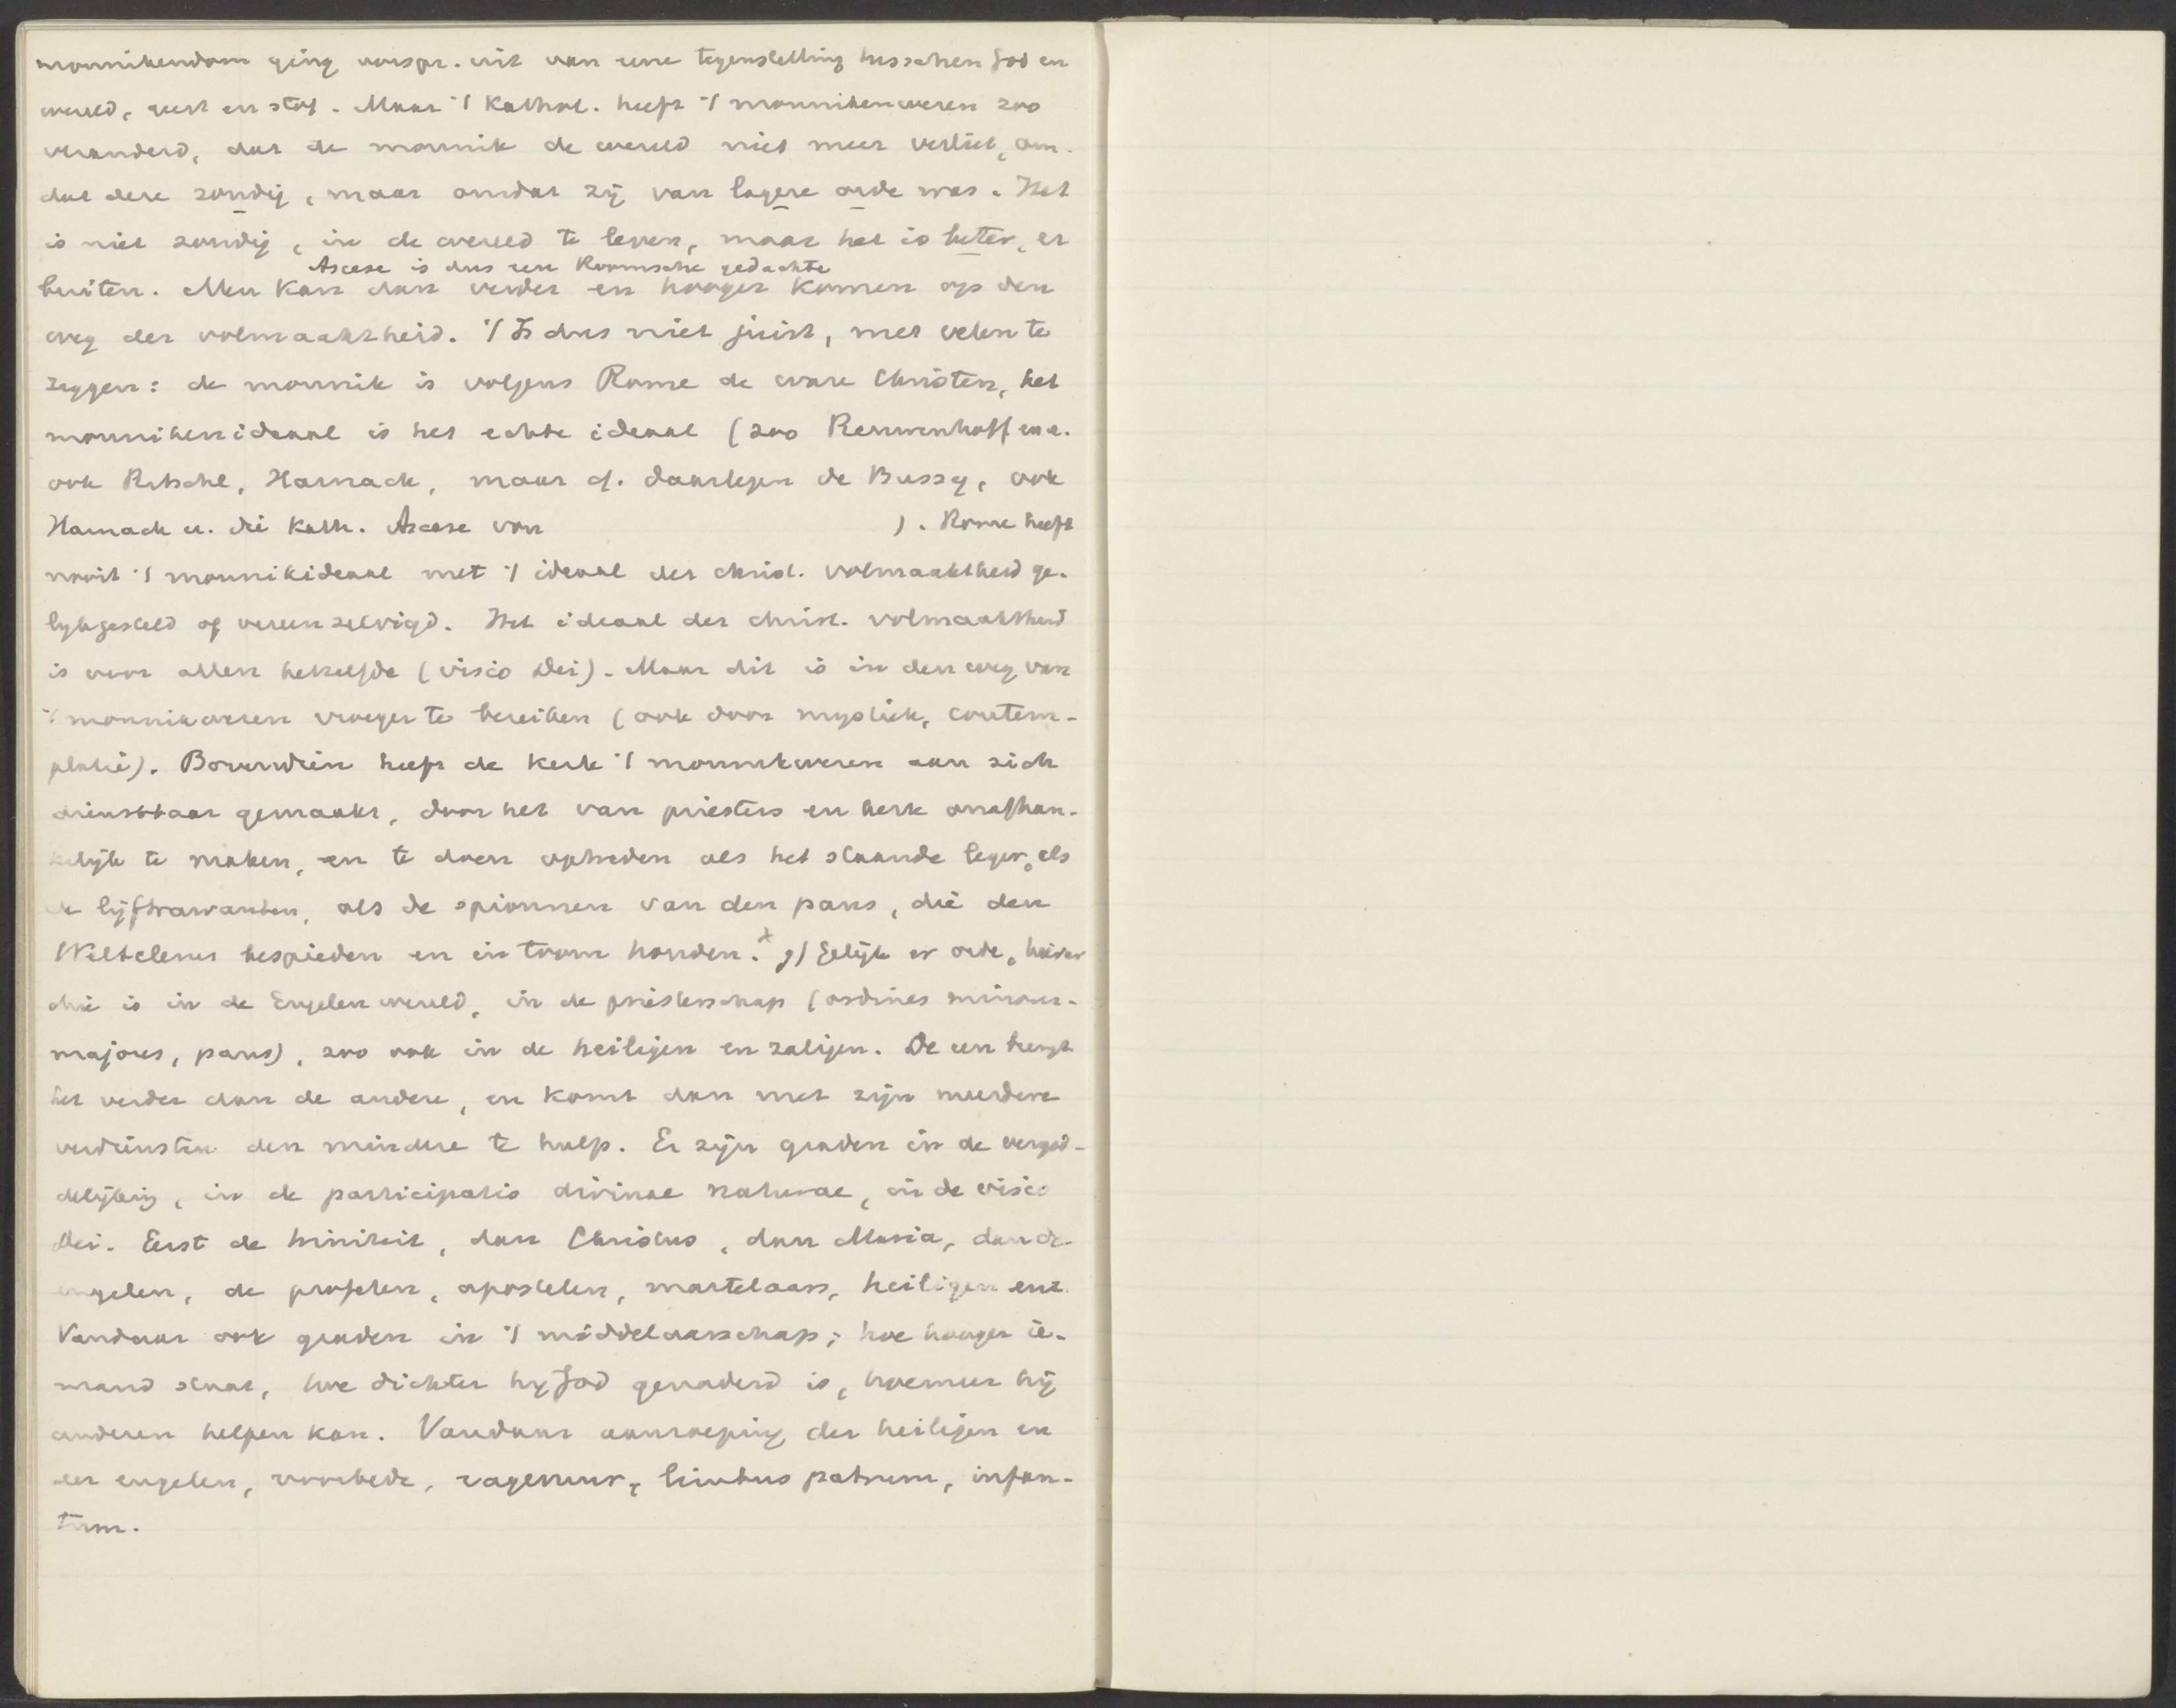 monnikendom ging oorspr. uit van eene tegenstelling tusschen God en
wereld, geest en stof. Maar 't Kathol. heeft 't monnikenwezen zoo
veranderd, dat de monnik de wereld niet meer verliet, om-
dat deze zondig, maar omdat zij van lagere orde was. Het
is niet zondig, in de wereld te leven, maar het is beter, er
Ascese is dus een Roomsche gedachte
buiten. Men kan dan verder en hooger komen op den
weg der volmaaktheid. 't Is dus niet juist, met velen te
zeggen: de monnik is volgens Rome de ware Christen, het
monnikenideaal is het echte ideaal (zoo Rauwenhoff e.a.
ook Ritschl, Harnack, maar cf. daartegen de Bussy, ook
Harnack u. die Kath. Ascese von ). Rome heeft
nooit 't monnikideaal met 't ideaal der christ. volmaaktheid ge-
lykgesteld of vereenzelvigd. Het ideaal der christ. volmaaktheid
is voor allen hetzelfde (visio Dei). Maar dit is in den weg van
't monnikwezen vroeger te bereiken (ook door mystiek, contem-
platie). Bovendien heeft de kerk 't monnikwezen aan zich
dienstbaar gemaakt, door het van priesters en kerk onafhan-
kelijk te maken, en te doen optreden als het staande leger, als
de lijftrawanten, als de spionnen van den paus, die den
Weltclerus bespieden en in toom houden. x g) Gelijk er orde, hierar
chie is in de Engelenwereld, in de priesterschap (ordines minores-
majores, paus), zoo ook in de heiligen en zaligen. De een brengt
het verder dan de andere, en komt dan met zijn meerdere
verdiensten den mindere te hulp. Er zijn graden in de vergod-
delijking, in de participatio divinae naturae, in de visio
Dei. Eerst de triniteit, dan Christus, dan Maria, dan de
engelen, de profeten, apostelen, martelaars, heiligen enz.
Vandaar ook graden in 't middelaarschap; hoe hooger ie-
mand staat, hoe dichter hy God genaderd is, hoe meer hij
anderen helpen kan. Vandaar aanroeping der heiligen en
der engelen, voorbede, vagevuur, limbus patrum, infan-
tum.